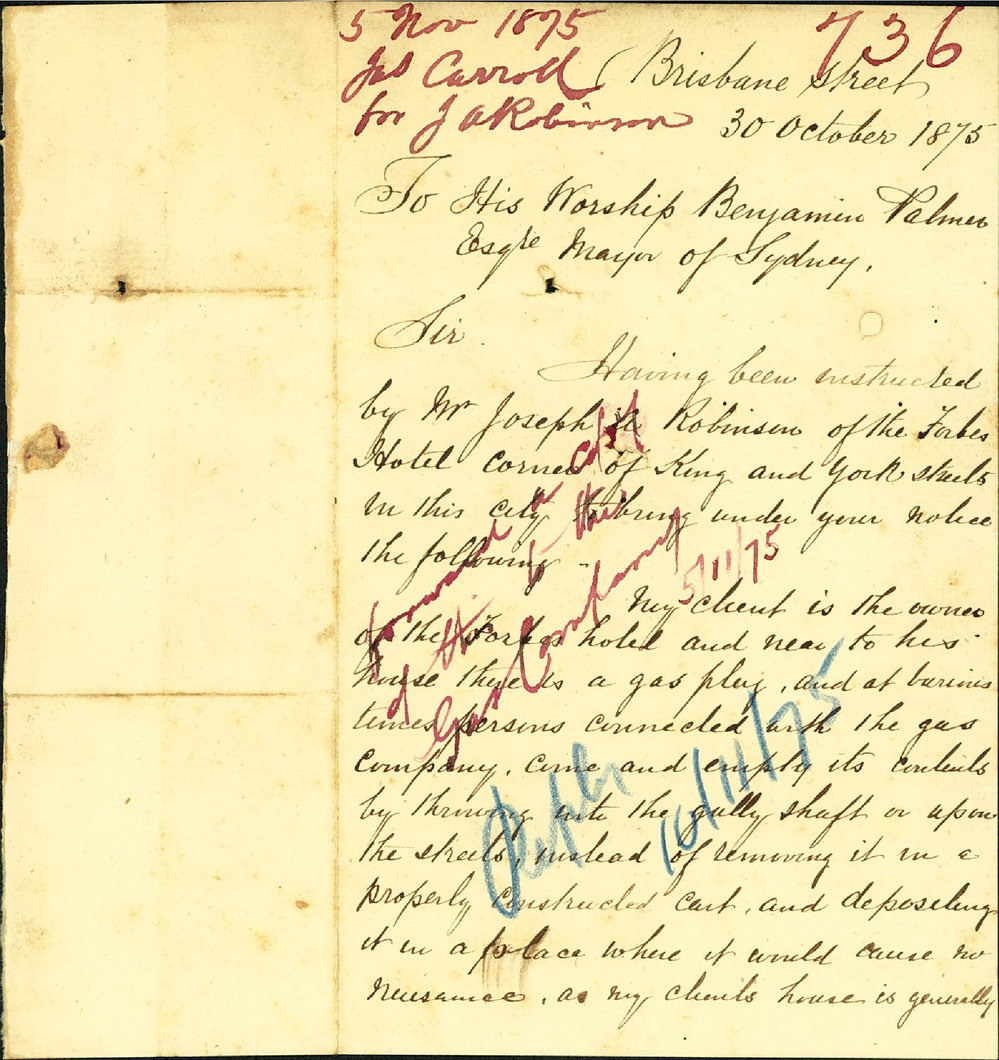 5 Nov 1875
Jas Carroll
for J A Robinson
736
Brisbane street
30 October 1875
To His Worship Benjamin Palmer
Esqre Mayor of Sydney.
Sir.
Having been instructed
by Mr Joseph A Robinson of the Forbes
Hotel corner of King and York streets
in this city to bring under your notice
the following -
My client is the owner
of the Forbes hotel and near to his
house there is a gas plug, and at various
times persons connected with the gas
company, come and empty its contents
by throwing into the gully shaft or upon
the streets, instead of removing it in a
properly constructed cart, and depositing
it in a place where it would cause no
neusance, as my clients house is generally
forward a copy
of this to the
Gas Company
5/11/75
Reply
10/11/75